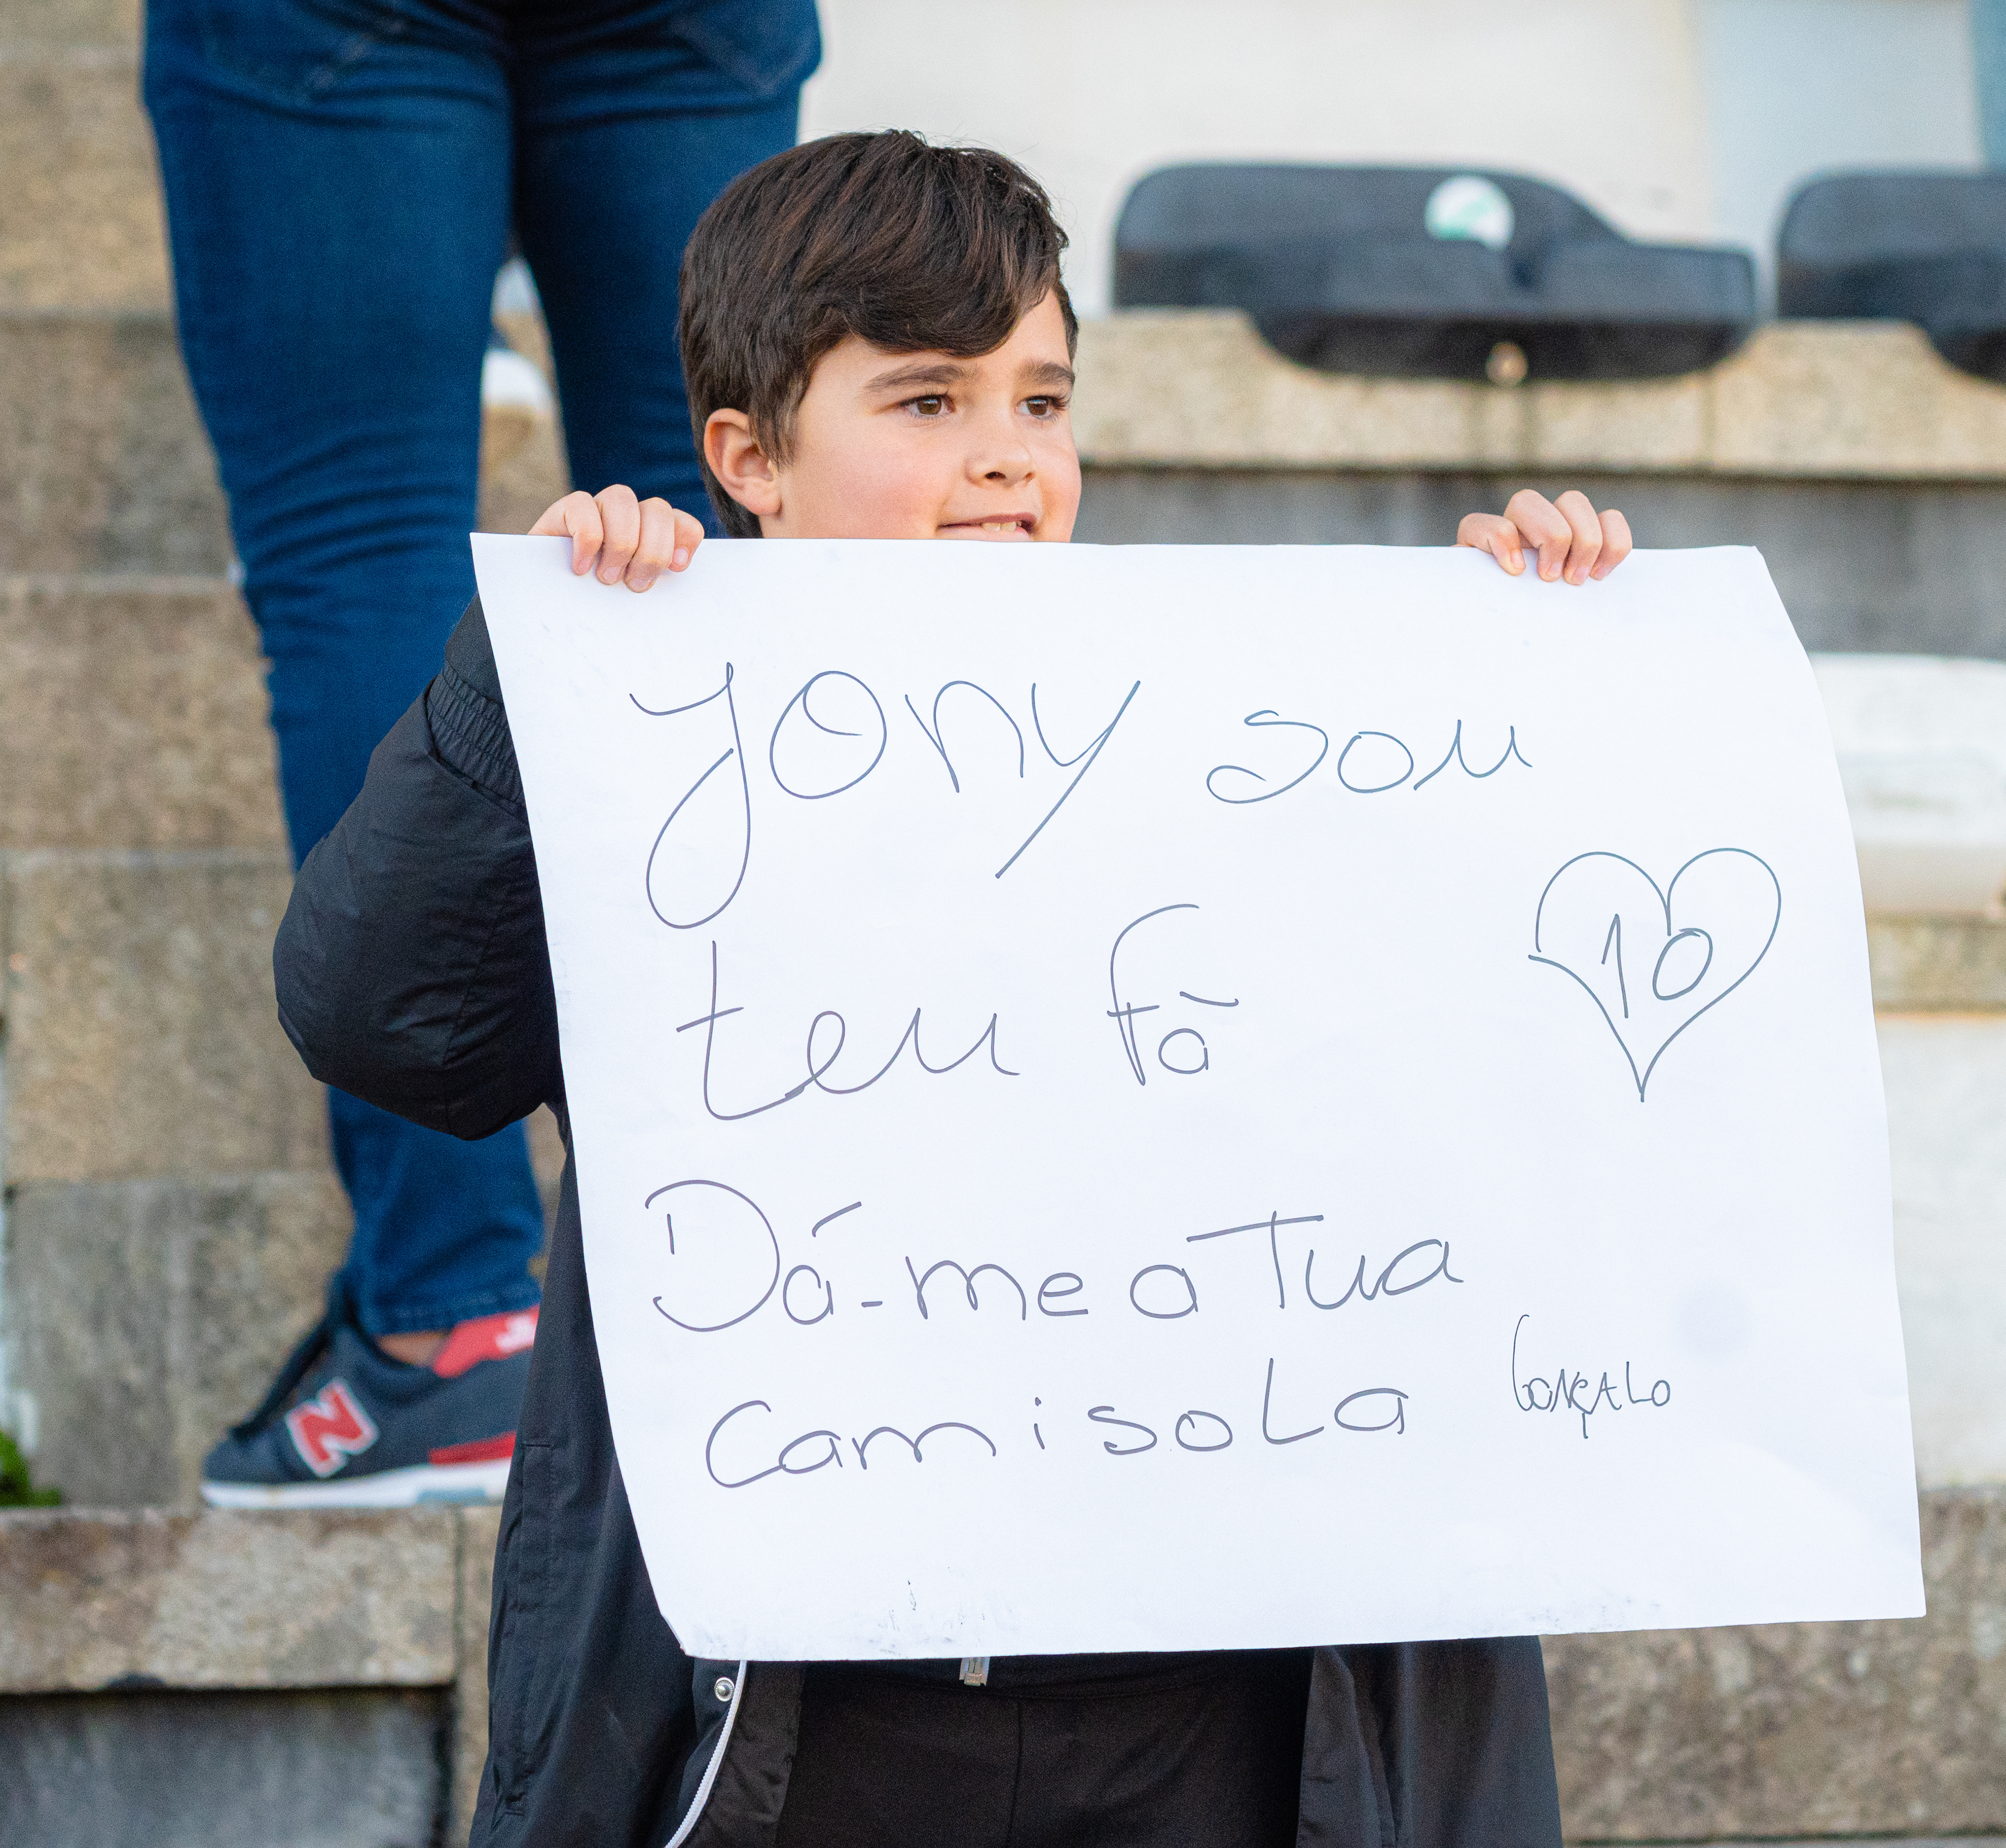 Jony sou
teu fã
10
Dá-me a Tua
camisola
Gonçalo
N